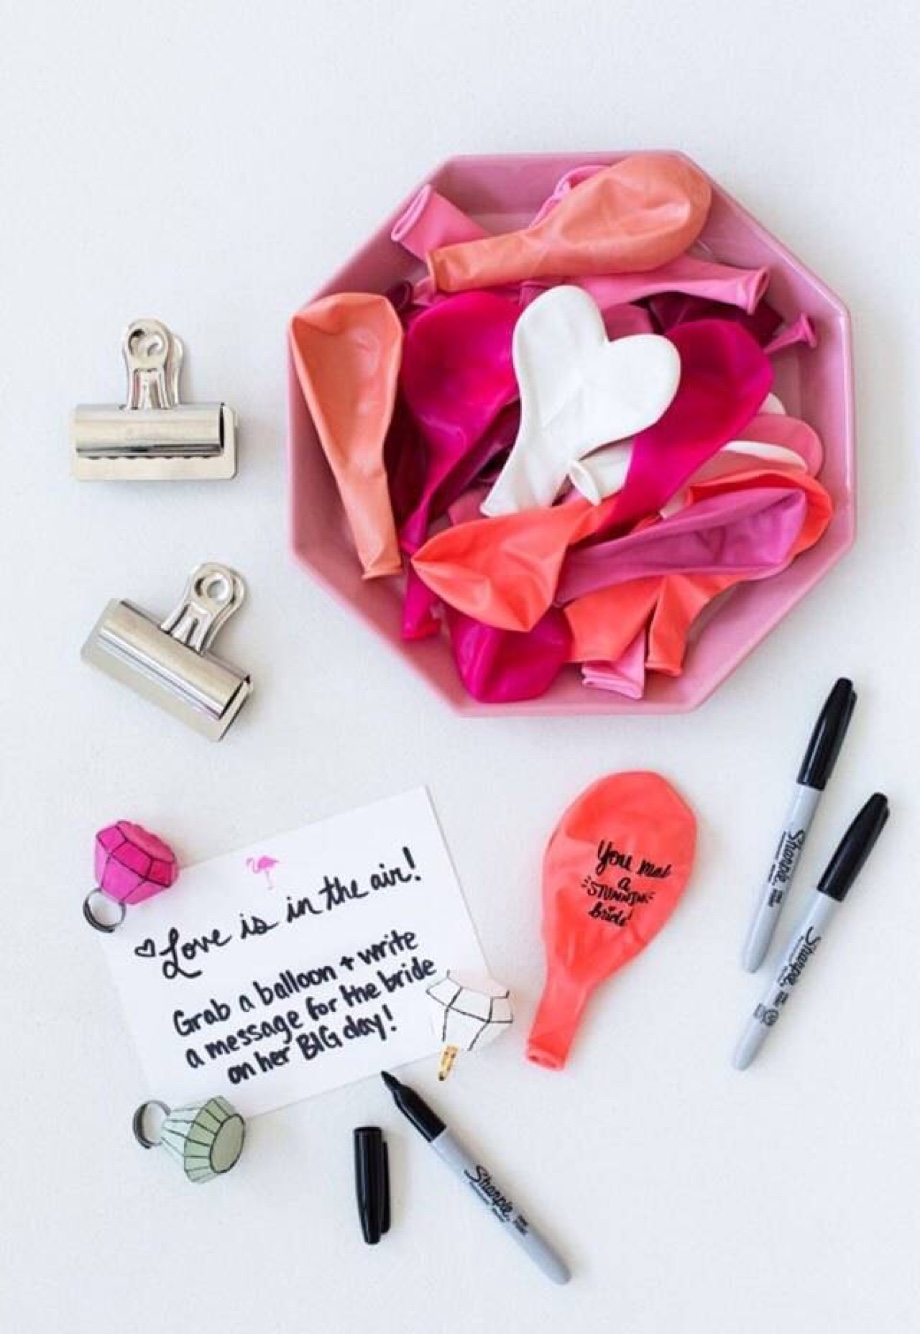 ♡Love is in the air!
Grab a balloon + write
a message for the bride
on her BIG day!
You
a
STUNNING
bride!
Sharpie
Sharpie
Sharpie